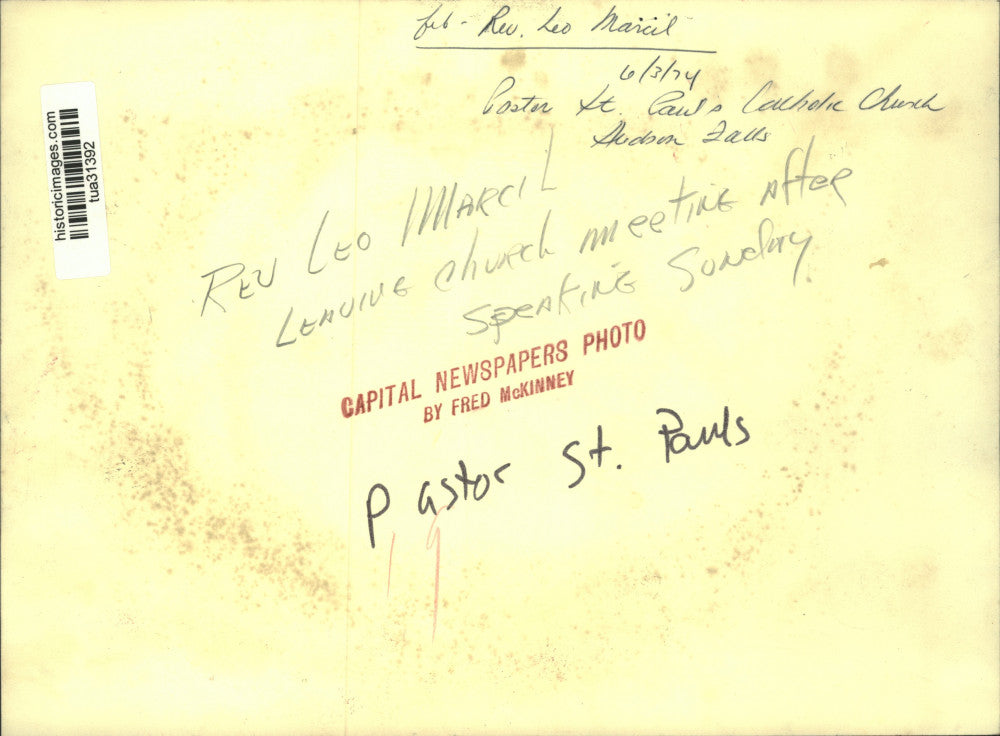 Rev. Leo Marcil
6/3/74
Pastor St. Paul's Catholic Church
Hudson Falls
historicimages.com
tua31392
REV LEO MARCIL
LEAVING church meeting After
SpeAKING Sunday.
CAPITAL NEWSPAPERS PHOTO
BY FRED McKINNEY
Pastor St. Pauls
19